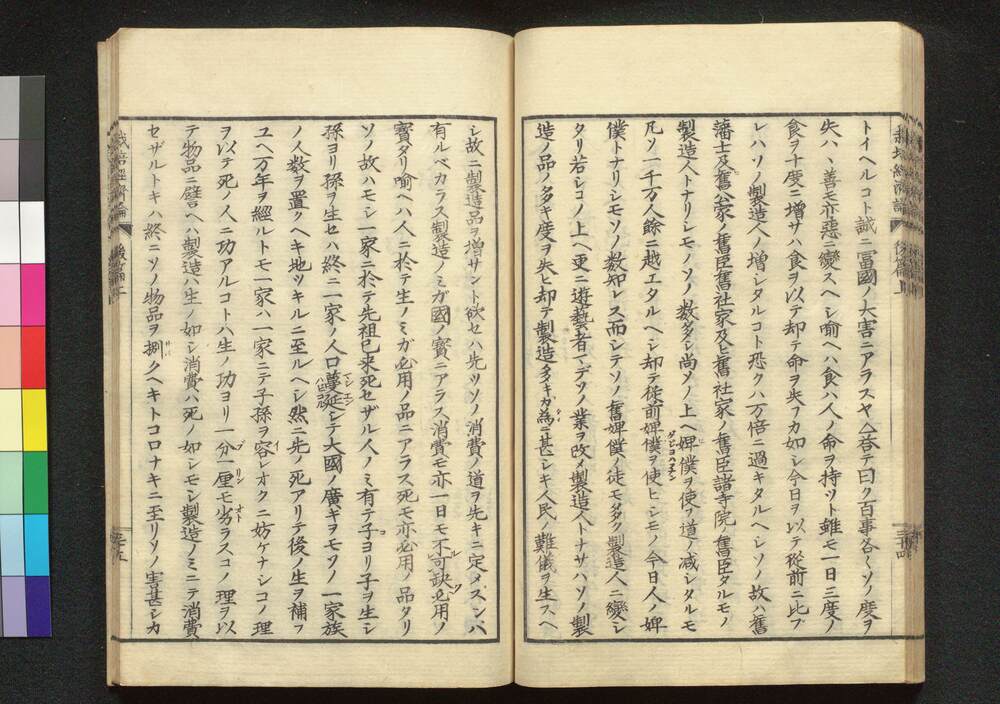 トイヘルコト誠ニ冨國ノ大害ニアラスヤ△荅テ曰ク百事各〻ソノ度ヲ
失ハヽ善モ亦惡ニ變スヘシ喻ヘハ食ハ人ノ命ヲ持ツト雖モ一日三度ノ
食ヲ十度ニ增サハ食ヲ以テ却テ命ヲ失フカ如シ今日ヲ以テ從前ニ比ブ
レハソノ製造人ノ增シタルコト恐クハ万倍ニ過キタルヘシソノ故ハ舊
藩士及舊公家ノ舊臣舊社家及ヒ舊社家ノ舊臣諸寺院ノ舊臣タルモノ
製造人トナリシモノソノ数多シ尚ソノ上ヘ婢僕ヲ使フ道ノ減シタルモ
凡ソ一千万人餘ニ越エタルヘシ却テ從前婢僕ヲ使ヒシモノ今日人ノ婢
僕トナリシモソノ数知レス而シテソノ舊婢僕ノ徒モ多ク製造人ニ變シ
タリ若シコノ上ヘ更ニ遊藝者マデソノ業ヲ改メ製造人トナサハソノ製
造ノ品ノ多キ度ヲ失ヒ却テ製造多キカ為ニ甚シキ人民ノ難儀ヲ生スヘ
シ故ニ製造品ヲ增サント欲セハ先ツソノ消費ノ道ヲ先キニ定メズンバ
有ルベカラス製造ノミガ國ノ寶ニアラス消費モ亦一日モ不可缺必用ノ
寶タリ喻ヘハ人ニ於テ生ノミガ必用ノ品ニアラス死モ亦必用ノ品タリ
ソノ故ハモシ一家ニ於テ先祖已来死セザル人ノミ有テ子ヨリ子ヲ生シ
孫ヨリ孫ヲ生セハ終ニ一家ノ人口蔓延シテ大國ノ廣ギヲモソノ一家族
ノ人数ヲ置クヘキ地ツキルニ至ルヘシ然ニ先ノ死アリテ後ノ生ヲ補フ
ユヘ万年ヲ經ルトモ一家ハ一家ニテ子孫ヲ容レオクニ妨ケナシコノ理
ヲ以テ死ノ人ニ功アルコトハ生ノ功ヨリ一分一厘モ劣ラスコノ理ヲ以
テ物品ニ譬ヘハ製造ハ生ノ如シ消費ハ死ノ如シモシ製造ノミニテ消費
セザルトキハ終ニソノ物品ヲ捌クヘキトコロナキニ至リソノ害甚シカ
栽培經濟論